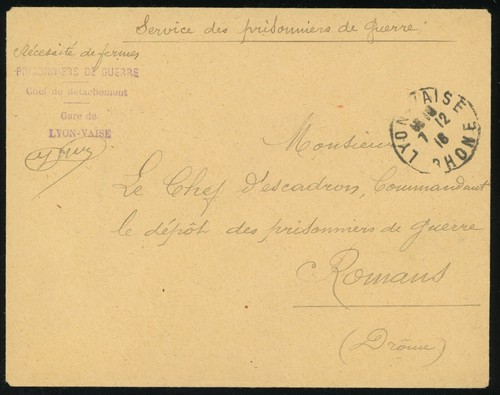 Service des prisonniers de Guerre
Nécessité de fermer
PRISONNIERS DE GUERRE
Chef de détachement
Gare de
LYON-VAISE
LYON-VAISE RHONE
7 12
16
Monsieur
Le Chef d'escadron, Commandant
le dépôt des prisonniers de guerre
Romans
(Drôme)